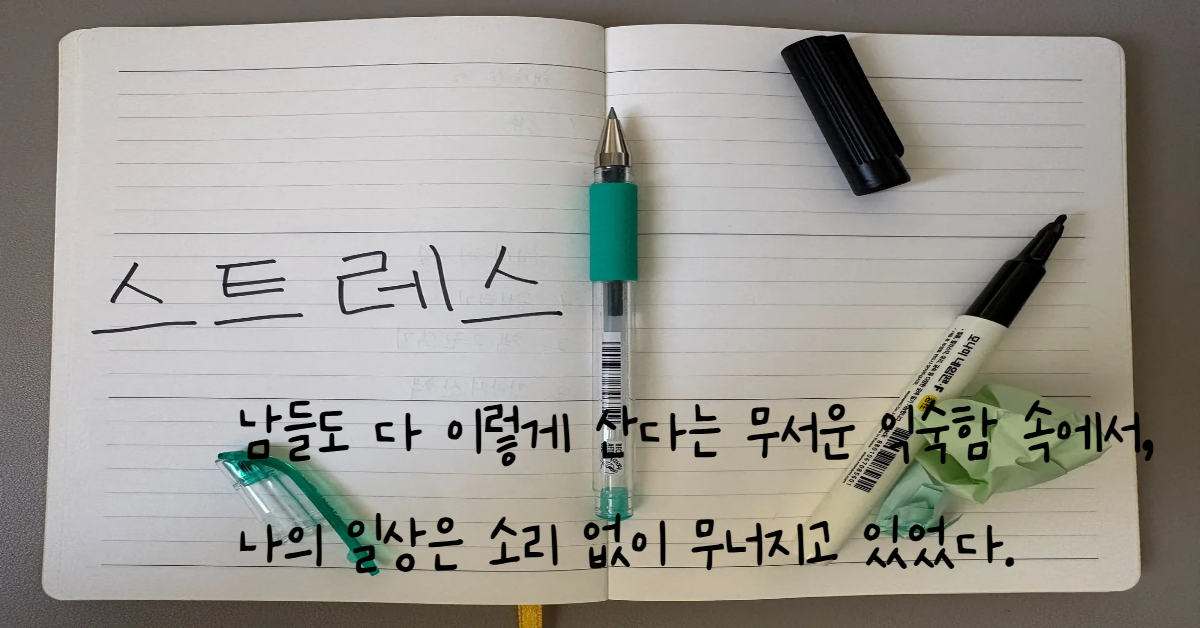 스트레스
남들도 다 이렇게 산다는 무서운 익숙함 속에서,
나의 일상은 소리 없이 무너지고 있었다.